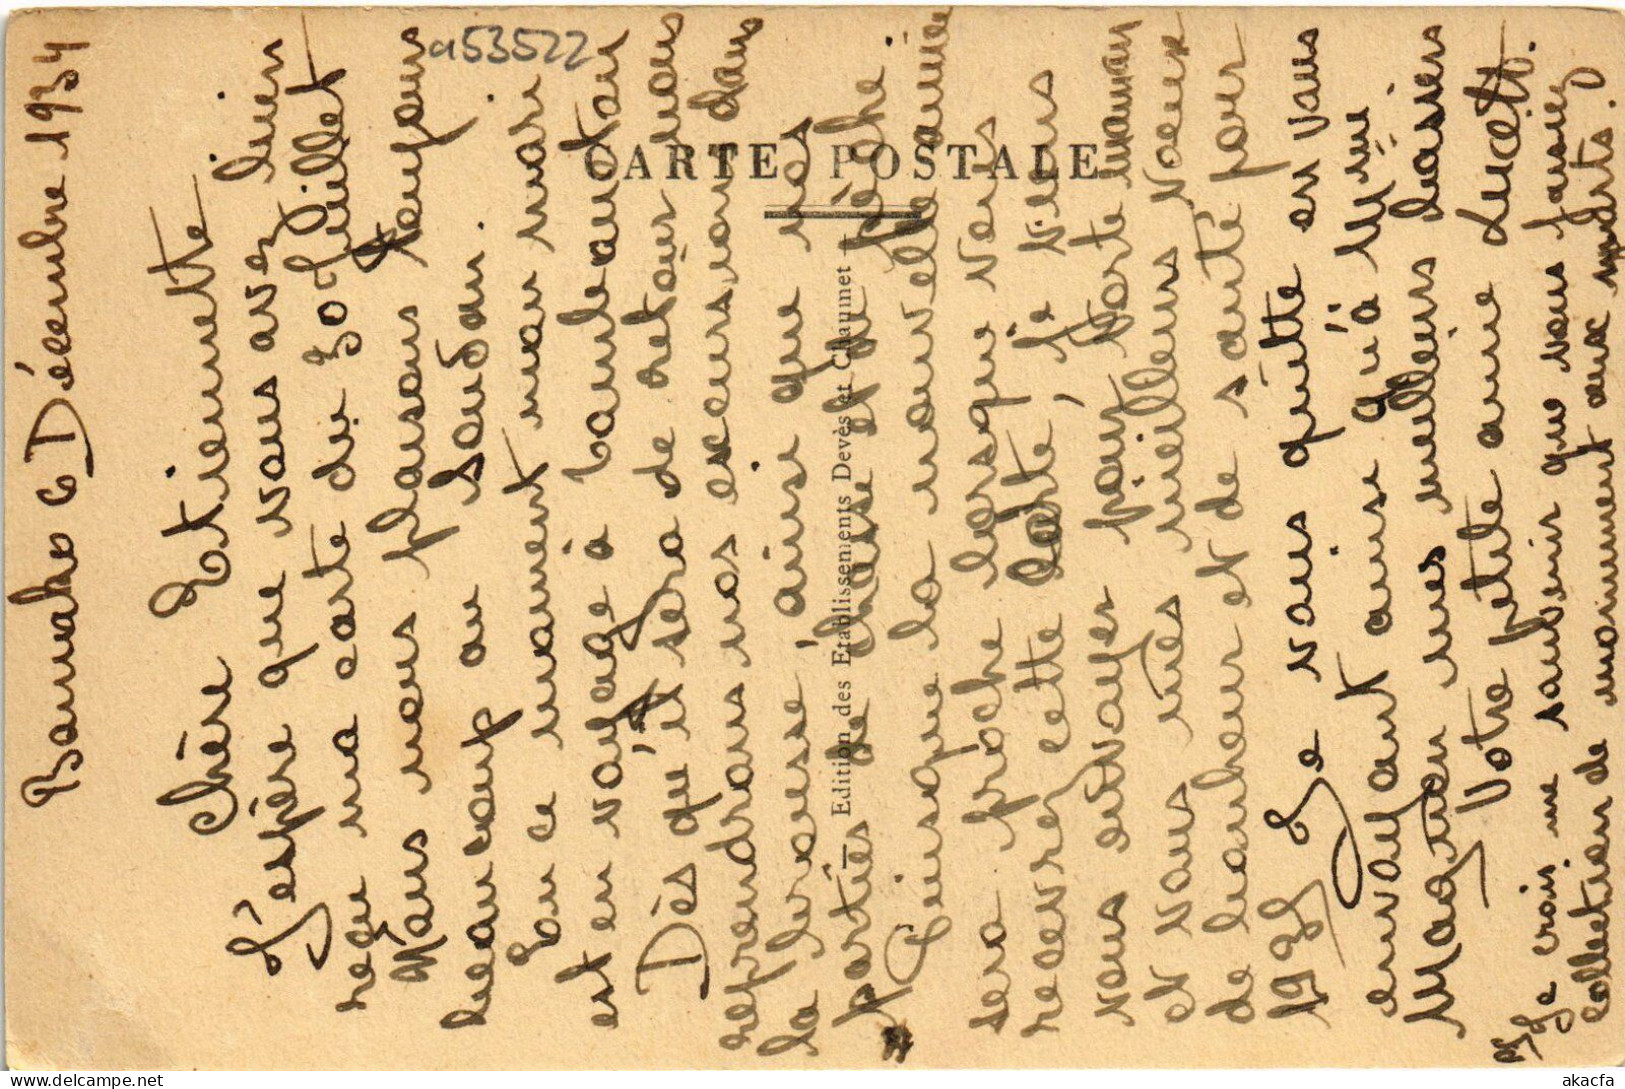 Bamako 6 Décembre 1934
Chère Etiennette
J'espère que vous avez bien
reçu ma carte du 30 Juillet
Nous nous plaisons toujours
beaucoup au Soudan.
En ce moment mon mari
est en voyage à Tombouctou
Dès qu'il sera de retour nous
reprendrons nos excursions dans
la brousse, ainsi que nos
parties de chasse et de pêche.
Puisque la nouvelle année
sera proche lorsque vous
recevrez cette carte, je viens
vous envoyer pour votre maman
et vous mes meilleurs voeux
de bonheur et de santé pour
1935 Je vous quitte en vous
envoyant ainsi qu'à Mme
Magnon mes meilleurs baisers
Votre petite amie Lucette.
Je crois me souvenir que vous faisiez
collection de monument aux morts.
a53522
CARTE POSTALE
Edition des Etablissements Devès et Chaumet
akacfa